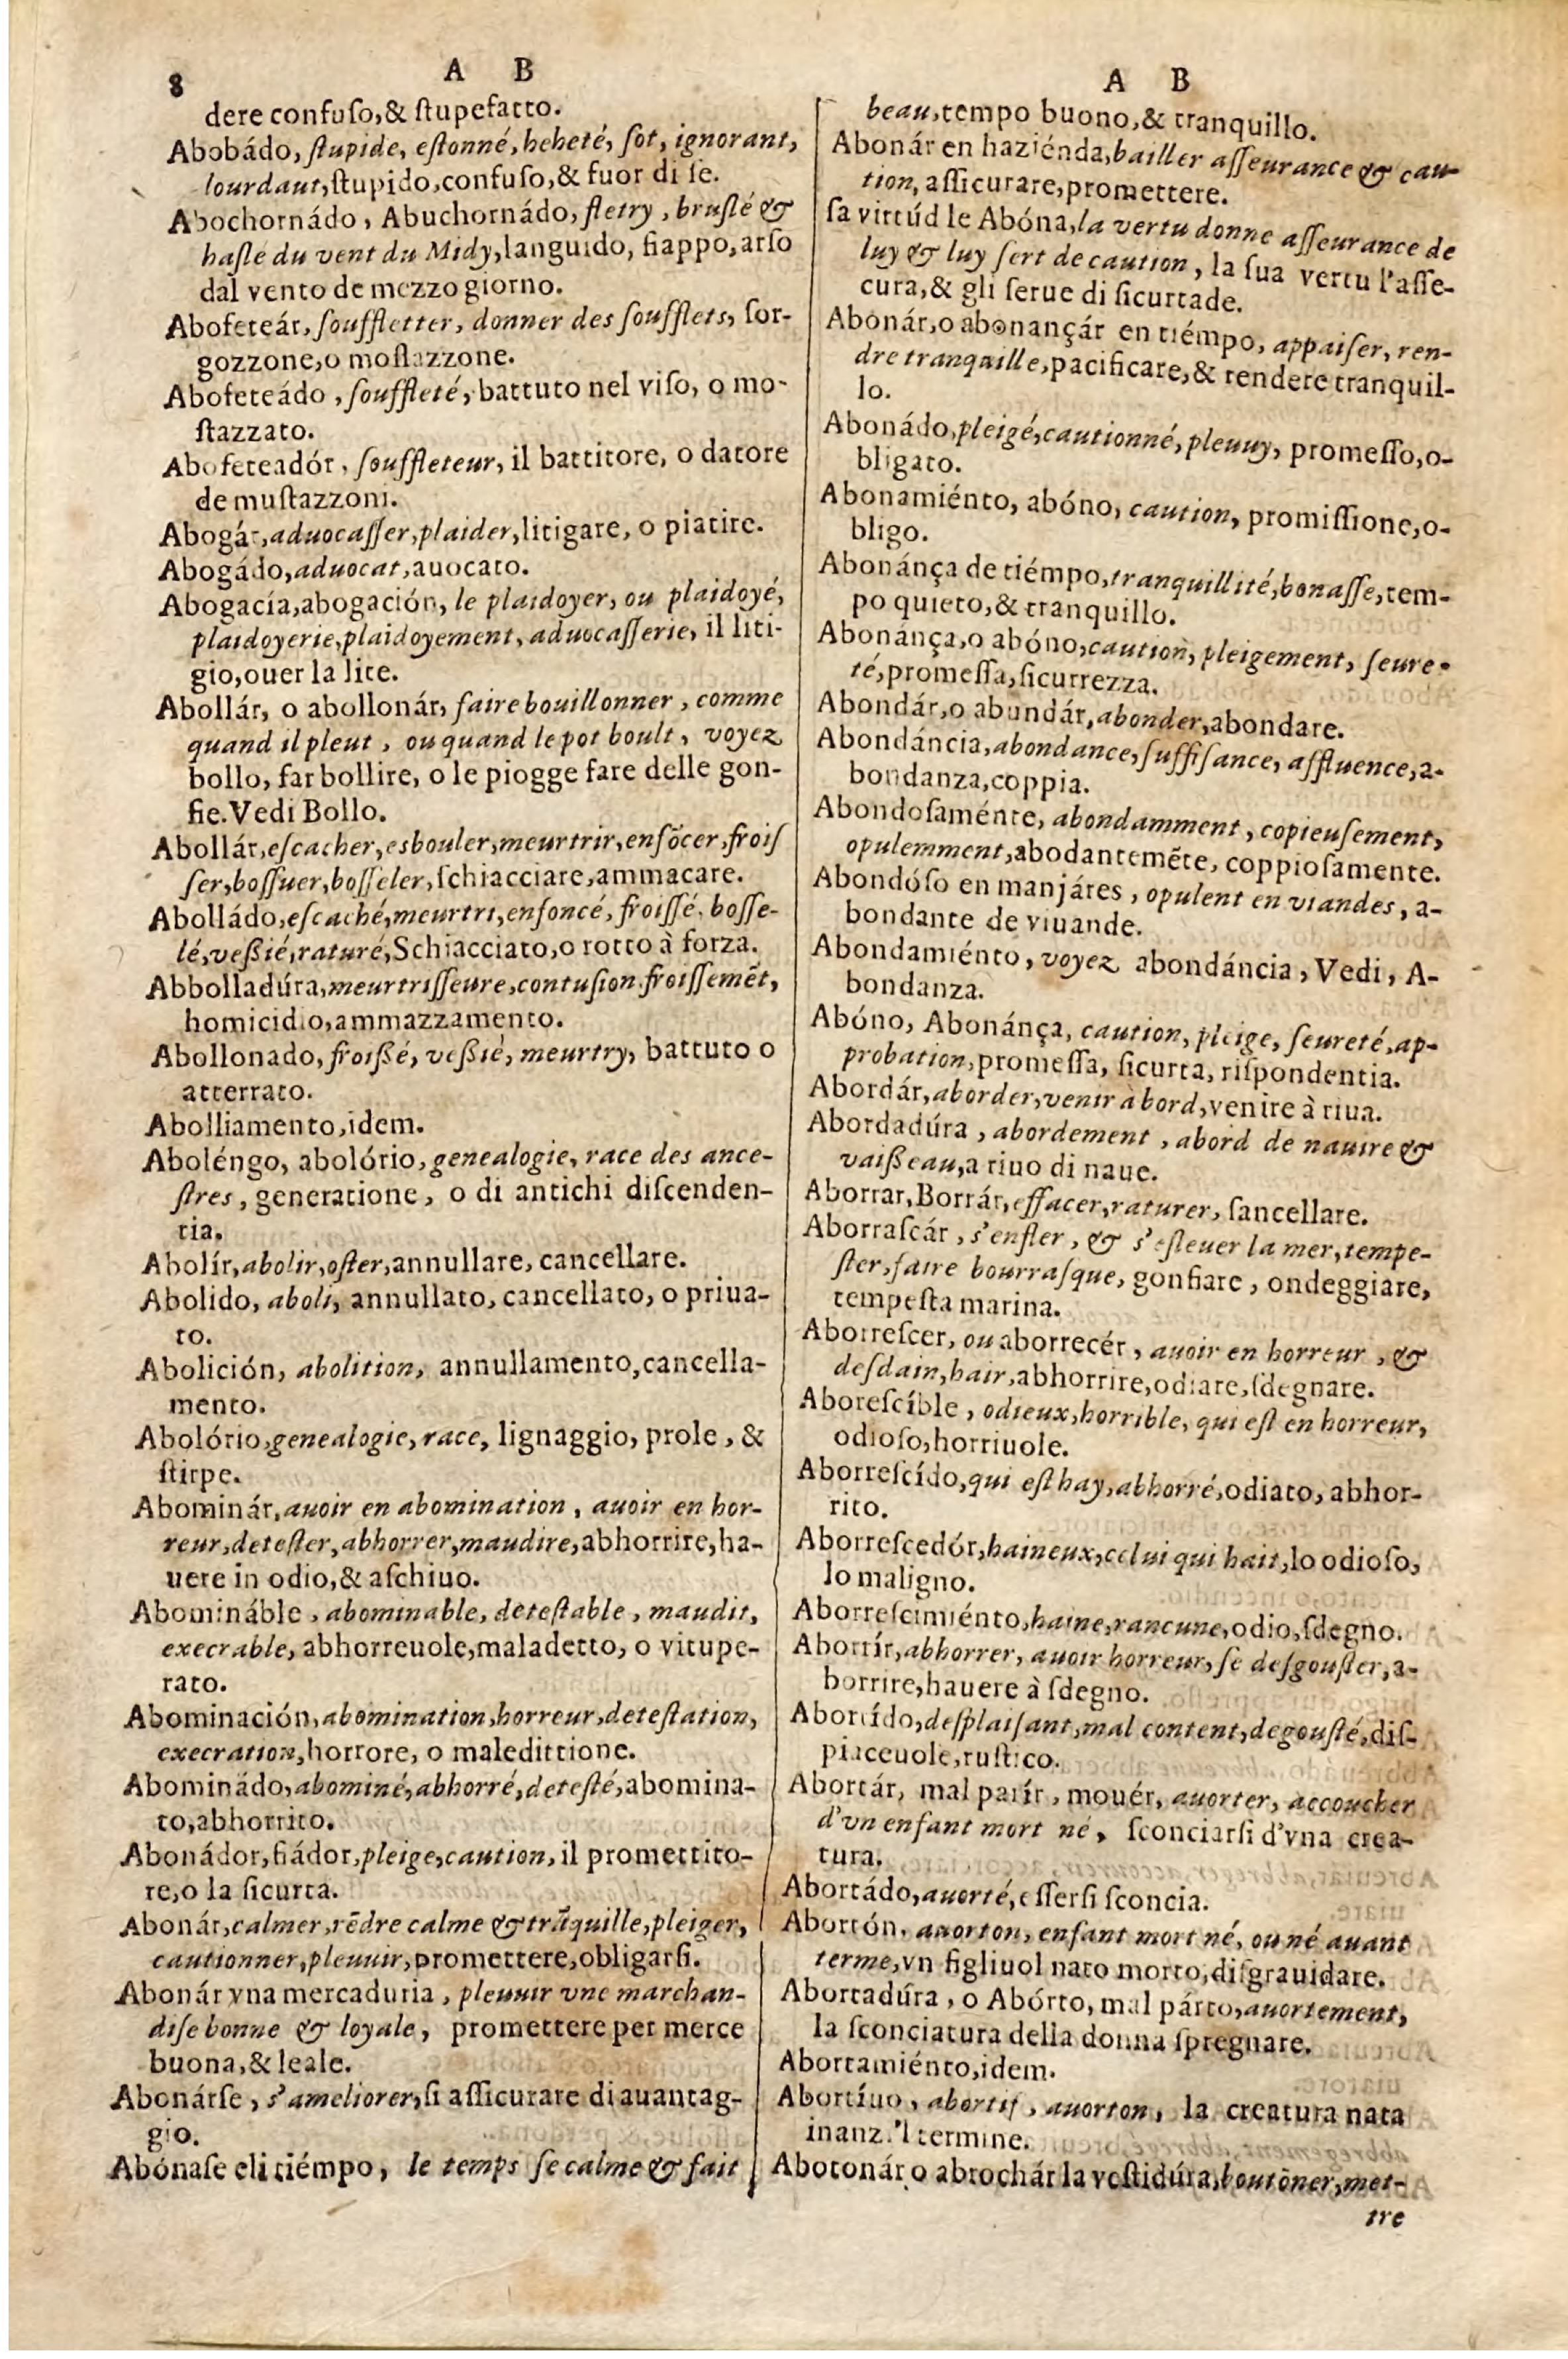 8
A B
dere confuſo,& ſtupefatto.
Abobádo, ſtupide, eſtonné, hebeté, ſot, ignorant,
lourdaut,ſtupido,confuſo,& fuor di ſe.
Abochornádo, Abuchornádo, fletry, bruſlé &
haſle du vent du Midy,languido, fiappo,arſo
dal vento de mezzo giorno.
Abofeteár, ſouffletter, donner des ſoufflets, ſor-
gozzone,o moſtazzone.
Abofeteádo, ſouffleté, battuto nel viſo, o mo-
ſtazzato.
Abofeteadór, ſouffleteur, il battitore, o datore
de muſtazzoni.
Abogár,aduocaſſer,plaider,litigare, o piatire.
Abogádo,aduocat,auocato.
Abogacía,abogación, le plaidoyer, ou plaidoyé,
plaidoyerie,plaidoyement, aduocaſſerie, il liti-
gio,ouer la lite.
Abollár, o abollonár, faire bouillonner, comme
quand il pleut, ou quand le pot boult, voyez
bollo, far bollire, o le piogge fare delle gon-
fie.Vedi Bollo.
Abollár,eſcacher,esbouler,meurtrir,enfõcer,froiſ
ſer,boſſuer,boſſeler,ſchiacciare,ammacare.
Abolládo,eſcaché,meurtri,enfoncé,froiſſé, boſſe-
lé,veßié,raturé,Schiacciato,o rotto à forza.
Abbolladúra,meurtriſſeure,contuſion,froiſſemẽt,
homicidio,ammazzamento.
Abollonado, froißé, veßié, meurtry, battuto o
atterrato.
Abolliamento,idem.
Aboléngo, abolório, genealogie, race des ance-
ſtres, generatione, o di antichi diſcenden-
tia.
Abolír,abolir,oſter,annullare, cancellare.
Abolido, aboli, annullato, cancellato, o priua-
to.
Abolición, abolition, annullamento,cancella-
mento.
Abolório,genealogie, race, lignaggio, prole, &
ſtirpe.
Abominár,auoir en abomination, auoir en hor-
reur,deteſter,abhorrer,maudire,abhorrire,ha-
uere in odio,& aſchiuo.
Abomináble, abominable, deteſtable, maudit,
execrable, abhorreuole,maladetto, o vitupe-
rato.
Abominación,abomination,horreur,deteſtation,
execration,horrore, o maledittione.
Abominádo,abominé,abhorré,deteſté,abomina-
to,abhorrito.
Abonádor, fiádor,pleige,caution, il promettito-
re,o la ſicurta.
Abonár,calmer,rẽdre calme & trãquille,pleiger,
cautionner,pleuuir,promettere,obligarſi.
Abonár vna mercaduria, pleuuir vne marchan-
diſe bonne & loyale, promettere per merce
buona,& leale.
Abonárſe, s'ameliorer,ſi aſſicurare di auantag-
gio.
Abónaſe eli tiémpo, le temps ſe calme & fait
A B
beau,tempo buono,& tranquillo.
Abonár en haziénda,bailler aſſeurance & cau-
tion, aſſicurare,promettere.
ſa virtúd le Abóna,la vertu donne aſſeurance de
luy & luy ſert de caution, la ſua vertu l'aſſe-
cura,& gli ſerue di ſicurtade.
Abonár,o abonançár en tiémpo, appaiſer, ren-
dre tranquille,pacificare,& rendere tranquil-
lo.
Abonádo,pleigé,cautionné,pleuuy, promeſſo,o-
bligato.
Abonamiénto, abóno, caution, promiſſione,o-
bligo.
Abonánça de tiémpo,tranquillité,bonaſſe,tem-
po quieto,& tranquillo.
Abonánça,o abóno,caution, pleigement, ſeure-
té,promeſſa,ſicurrezza.
Abondár,o abundár,abonder,abondare.
Abondáncia,abondance,ſuffiſance, affluence,a-
bondanza,coppia.
Abondoſaménte, abondamment, copieuſement,
opulemment,abodantemẽte, coppioſamente.
Abondóſo en manjáres, opulent en viandes, a-
bondante de viuande.
Abondamiénto, voyez abondáncia, Vedi, A-
bondanza.
Abóno, Abonánça, caution, pleige, ſeureté,ap-
probation,promeſſa, ſicurta, riſpondentia.
Abordár,aborder,venir à bord,venire à riua.
Abordadúra, abordement, abord de nauire &
vaißeau,a riuo di naue.
Aborrar,Borrár,effacer,raturer, ſancellare.
Aborraſcár, s'enfler, & s'eſleuer la mer,tempe-
ſter,faire bourraſque, gonfiare, ondeggiare,
tempeſta marina.
Aborreſcer, ou aborrecér, auoir en horreur, &
deſdain,hair,abhorrire,odiare,ſdegnare.
Aboreſcíble, odieux,horrible, qui eſt en horreur,
odioſo,horriuole.
Aborreſcído,qui eſt hay,abhorré,odiato, abhor-
rito.
Aborreſcedór,haineux,celui qui hait,lo odioſo,
lo maligno.
Aborreſcimiénto,haine,rancune,odio,ſdegno.
Aborrír,abhorrer, auoir horreur, ſe deſgouſter,a-
borrire,hauere à ſdegno.
Aborrído,deſplaiſant,mal content,degouſté,diſ-
piaceuole,ruſtico.
Abortár, mal parír, mouér, auorter, accoucher
d'vn enfant mort né, ſconciarſi d'vna crea-
tura.
Abortádo,auorté,eſſerſi ſconcia.
Abortón, auorton, enfant mort né, ou né auant
terme,vn figliuol nato morto,diſgrauidare.
Abortadúra, o Abórto, mal párto,auortement,
la ſconciatura della donna ſpregnare.
Abortamiénto,idem.
Abortíuo, abortif, auorton, la creatura nata
inanz.'l termine.
Abotonár,o abrochár la veſtidúra,boutõner,met-
tre